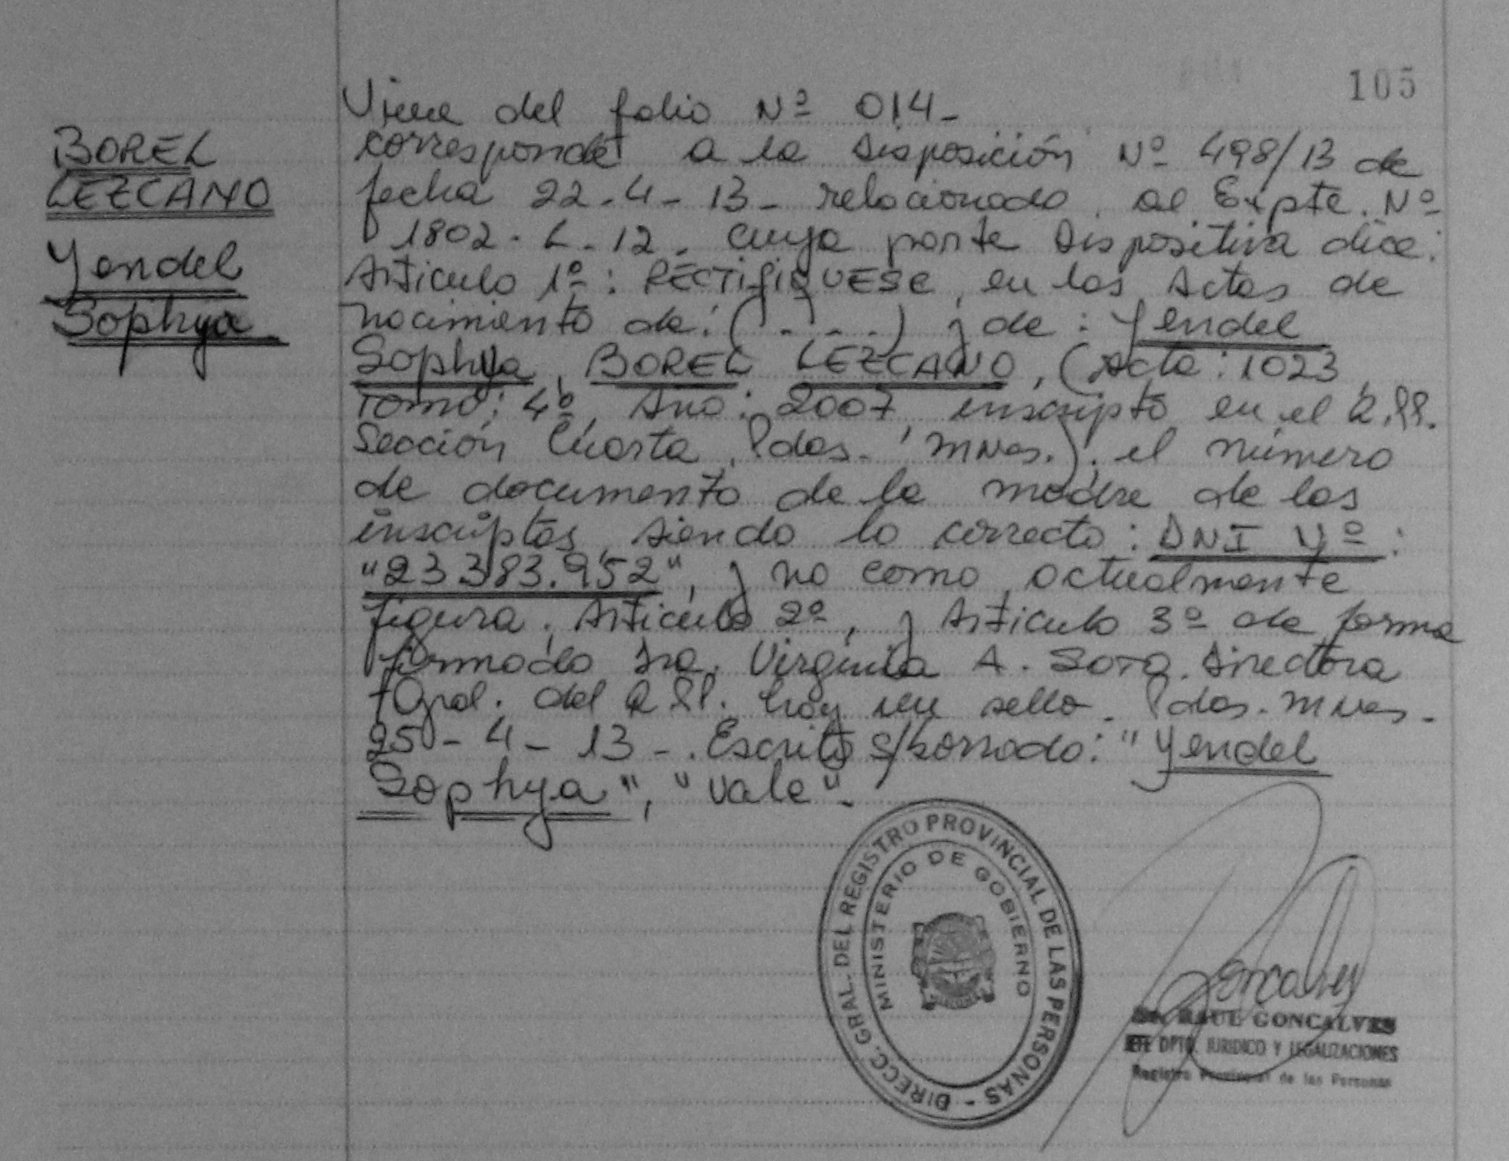 105
BOREL
LEZCANO
Yendel
Sophya
Viene del folio Nº 014-
corresponde a la Disposición Nº 498/13 de
fecha 22-4-13- relacionado al Expte. Nº
1802-L-12, cuya parte Dispositiva dice:
Articulo 1º: RECTIFIQUESE, en las Actas de
nacimiento de: (....) y de: Yendel
Sophya BOREL LEZCANO, (Acta: 1023
Tomo: 4º, Año: 2007, inscripto en el R.PP.
Sección Cuarta, Pdas. Mnes.), el número
de documento de la madre de los
inscriptos, siendo lo correcto: DNI Nº:
"23.383.952", y no como actualmente
figura. Articulo 2º, y Articulo 3º de forma
firmado Sra. Virginia A. Soto. Directora
Gral. del R.PP. hay un sello. Pdas. Mnes.
25-4-13-. Escrito s/borrado: "Yendel
Sophya", "Vale".
DIRECC. GRAL. DEL REGISTRO PROVINCIAL DE LAS PERSONAS -
MINISTERIO DE GOBIERNO
Goncalves
RAUL GONCALVES
JEFE DPTO. JURIDICO Y LEGALIZACIONES
Registro Provincial de las Personas